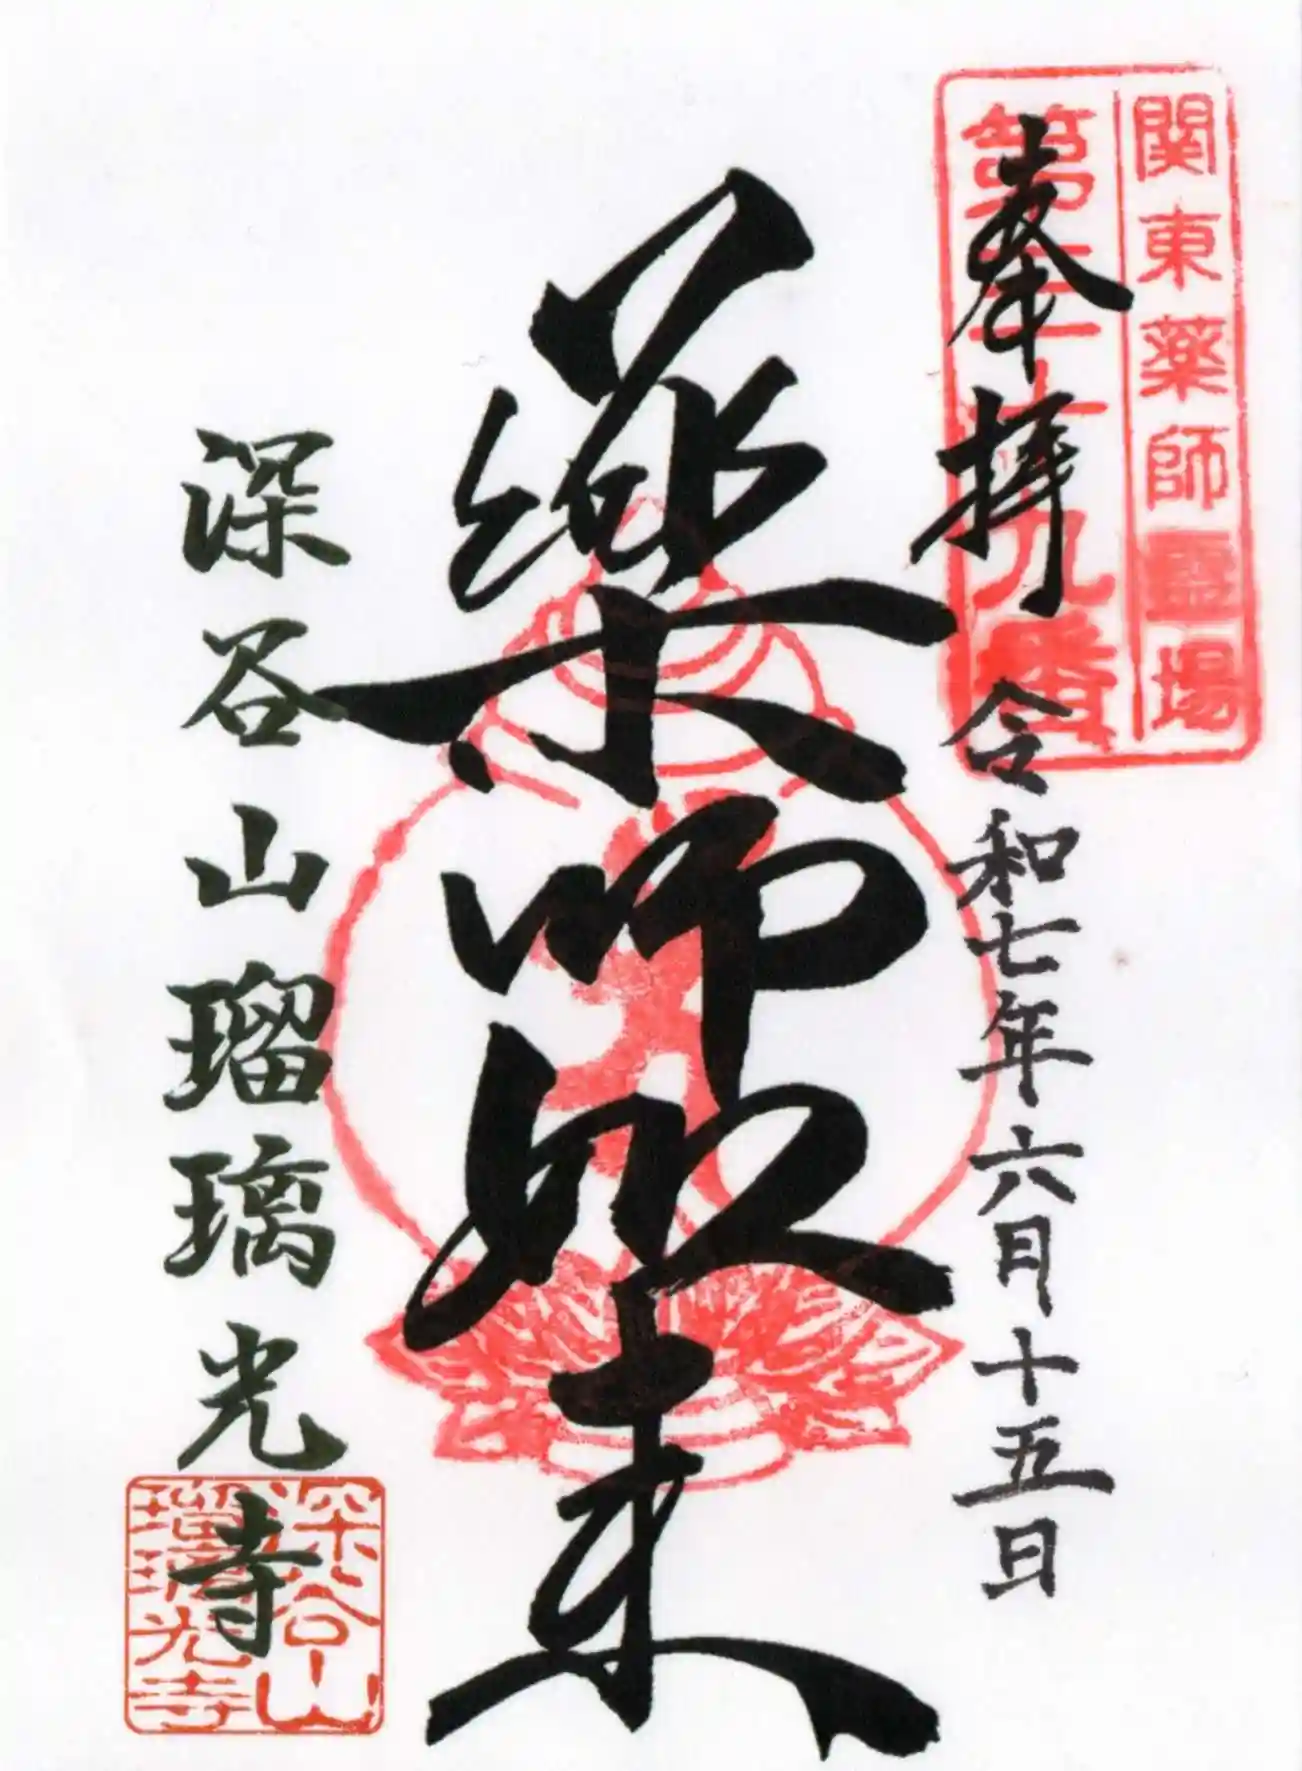 関東薬師霊場
第三十九番
奉拝
令和七年六月十五日
薬師如来
深谷山瑠璃光寺
深谷山
瑠璃光寺